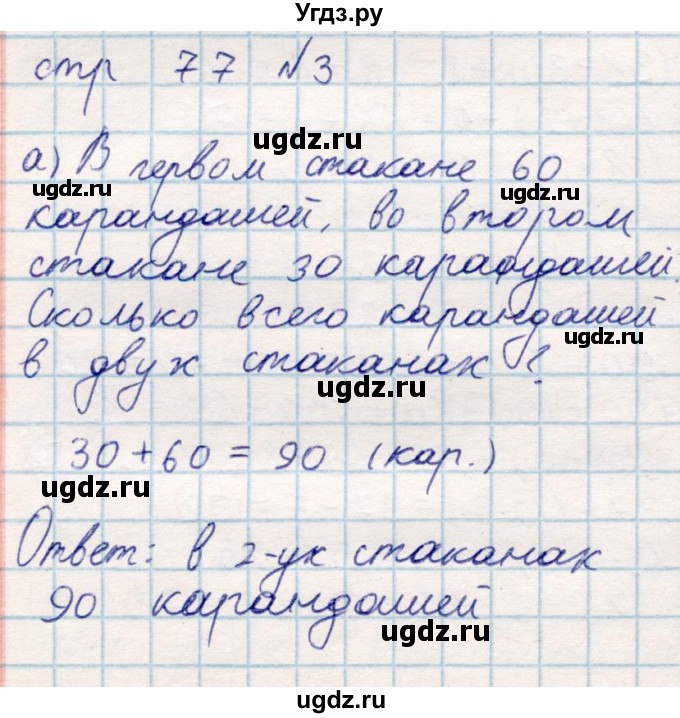 Угдз.ру
стр 77 №3
ugdz.ru
а) В первом стакане 60
ugdz.ru ugdz.ru
карандашей, во втором
стакане 30 карандашей.
Сколько всего карандашей
ugdz.ru
в двух стаканах?
ugdz.ru
30+60=90 (кар.)
ugdz.ru
Ответ: в 2-ух стаканах
ugdz.ru
90 карандашей
ugdz.ru
ugdz.ru